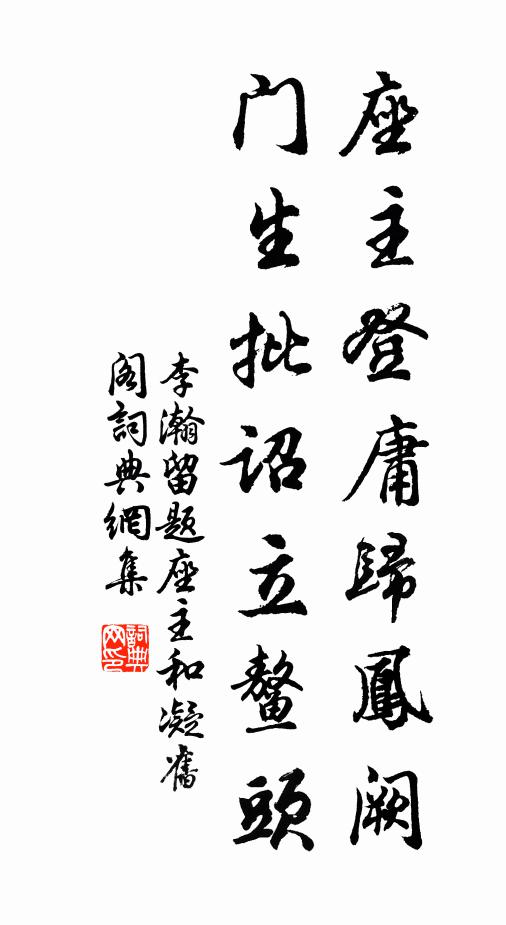 座主登庸歸鳳闕
门生批詔立鰲頭
李瀚留題座主和凝舊
阁詞典網集
詞典網印